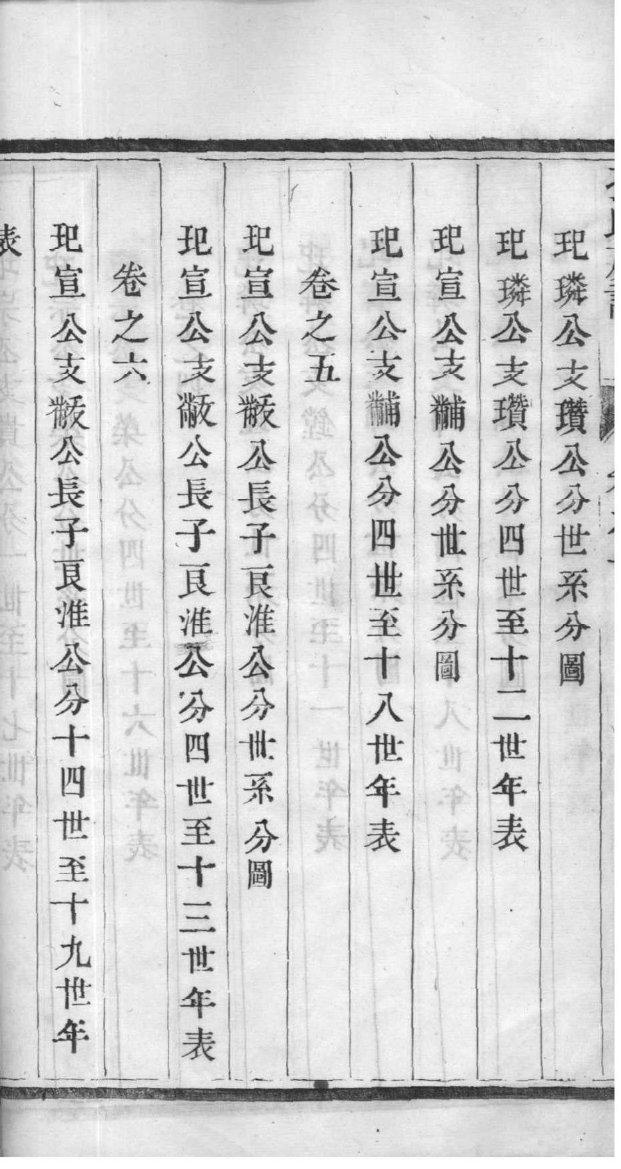 玘璘公支瓚公分世系分圖
玘璘公支瓚公分四世至十二世年表
玘宣公支黼公分世系分圖
玘宣公支黼公分四世至十八世年表
卷之五
玘宣公支黻公長子良淮公分世系分圖
玘宣公支黻公長子良淮公分四世至十三世年表
卷之六
玘宣公支黻公長子良淮公分十四世至十九世年
表